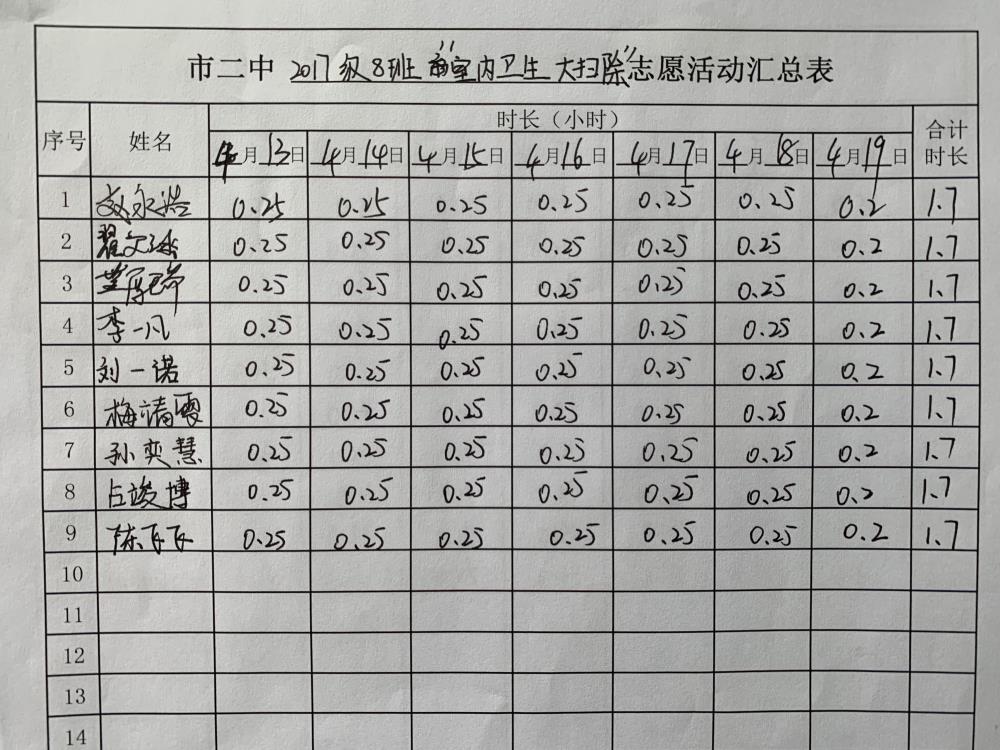 市二中 2017级8班“室内卫生大扫除”志愿活动汇总表
序号 姓名 时长（小时） 合计时长
4月13日 4月14日 4月15日 4月16日 4月17日 4月18日 4月19日
1 刘永浩 0.25 0.25 0.25 0.25 0.25 0.25 0.2 1.7
2 翟文冰 0.25 0.25 0.25 0.25 0.25 0.25 0.2 1.7
3 0.25 0.25 0.25 0.25 0.25 0.25 0.2 1.7
4 李一凡 0.25 0.25 0.25 0.25 0.25 0.25 0.2 1.7
5 刘一诺 0.25 0.25 0.25 0.25 0.25 0.25 0.2 1.7
6 梅靖雯 0.25 0.25 0.25 0.25 0.25 0.25 0.2 1.7
7 孙奕慧 0.25 0.25 0.25 0.25 0.25 0.25 0.2 1.7
8 占竣博 0.25 0.25 0.25 0.25 0.25 0.25 0.2 1.7
9 陈飞飞 0.25 0.25 0.25 0.25 0.25 0.25 0.2 1.7
10
11
12
13
14